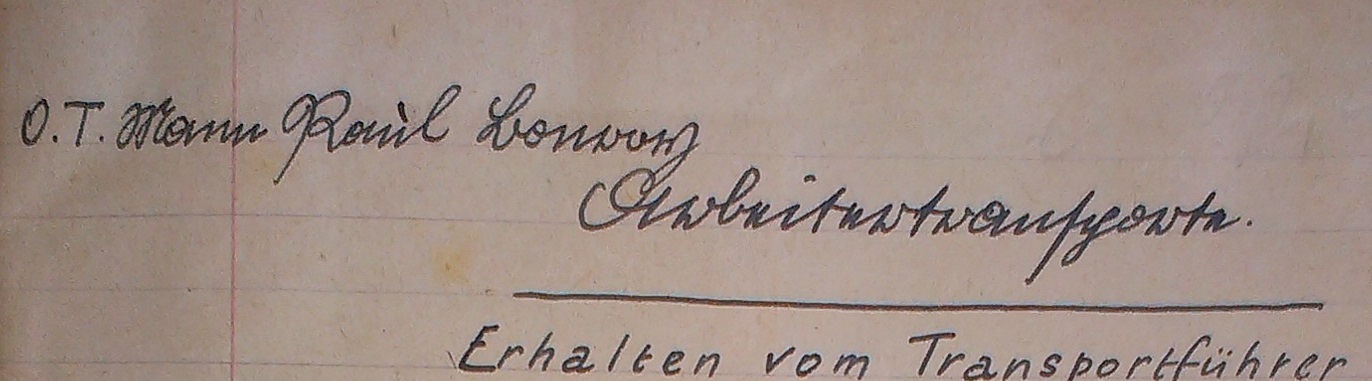 O.T. Mann Paul
Arbeitertransporte.
Erhalten vom Transportführer